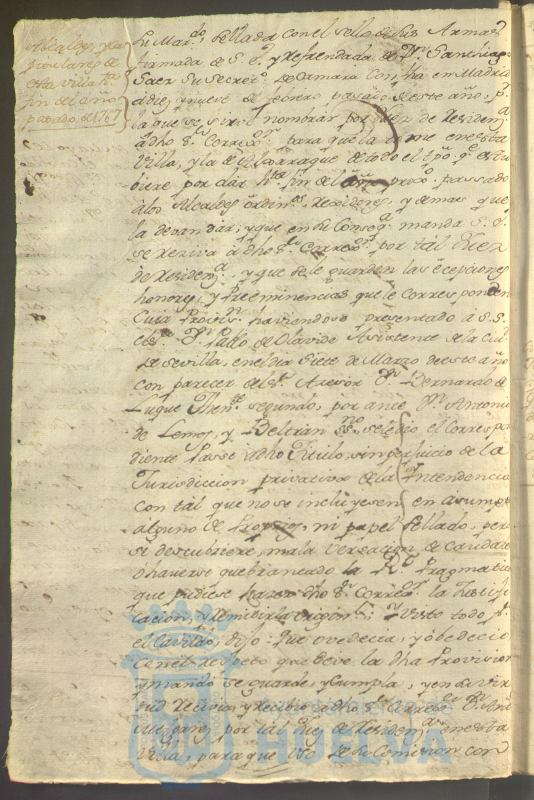 Alcaldes, y ca
pitulares de
esta villa ta
fin del año
pasado, de 1767
Su Mag.d, sellada con el sello de sus Armas
firmada de S. E. y Refrendada de Dn. Santhiago
Saez su Secreto. de Camara con, fha en Madrid
a diez, y nueve de febrero pasado de este año, pr
la que se sirve nombrar por Juez de Residena
a dho Sr. Correxor para que la tome en esta
villa, y la de de todo el tpo. qe estu
biere por dar hta fin del año proxo. passado
a los Alcaldes ordins. Rexidores, y demas que
la devan dar, y que en su Conseqa manda S. E.
se reziva a dho Sr. Correxor por tal Juez
de Residena, y que se le guarden las ecepciones
honores, y Preeminencias que le corresponden
Cuia Provisn haviendose presentado a S. S.
el Sr. Dn. Pablo de Olavide Asistente de la Ciud
de Sevilla, en el dia siete de Marzo de este año
con parecer del Sr. Asesor Dn. Bernardo de
Luque Thente segundo, por ante Dn. Antonio
de Lemos, y Beltran Sno. se le dio el correspon
diente passe a dho Titulo, sin perjuicio de la
Jurisdiccion privativa de la Intendencia
con tal que no se incluyesen en asumpto
alguno de Propios, ni papel sellado, pero
si descubriere, mala versacion de caudales
o haverse quebrantado la Rl. Pragmatica
que pudiese hazer dho Sr. Correxor la Justifi
cacion, y Remitirla orixinl; Visto todo pr
el Cavildo, dijo: Que ovedecia, y obedecio
con el respeto que deve la dha Provision
y mando se guarde, y Cumpla, y en su vir
tud Recivia, y Recivio a dho Sr. Correxor Dn.
por tal Juez de Residena en esta
Villa, para que Use de su Comision con
HUELVA